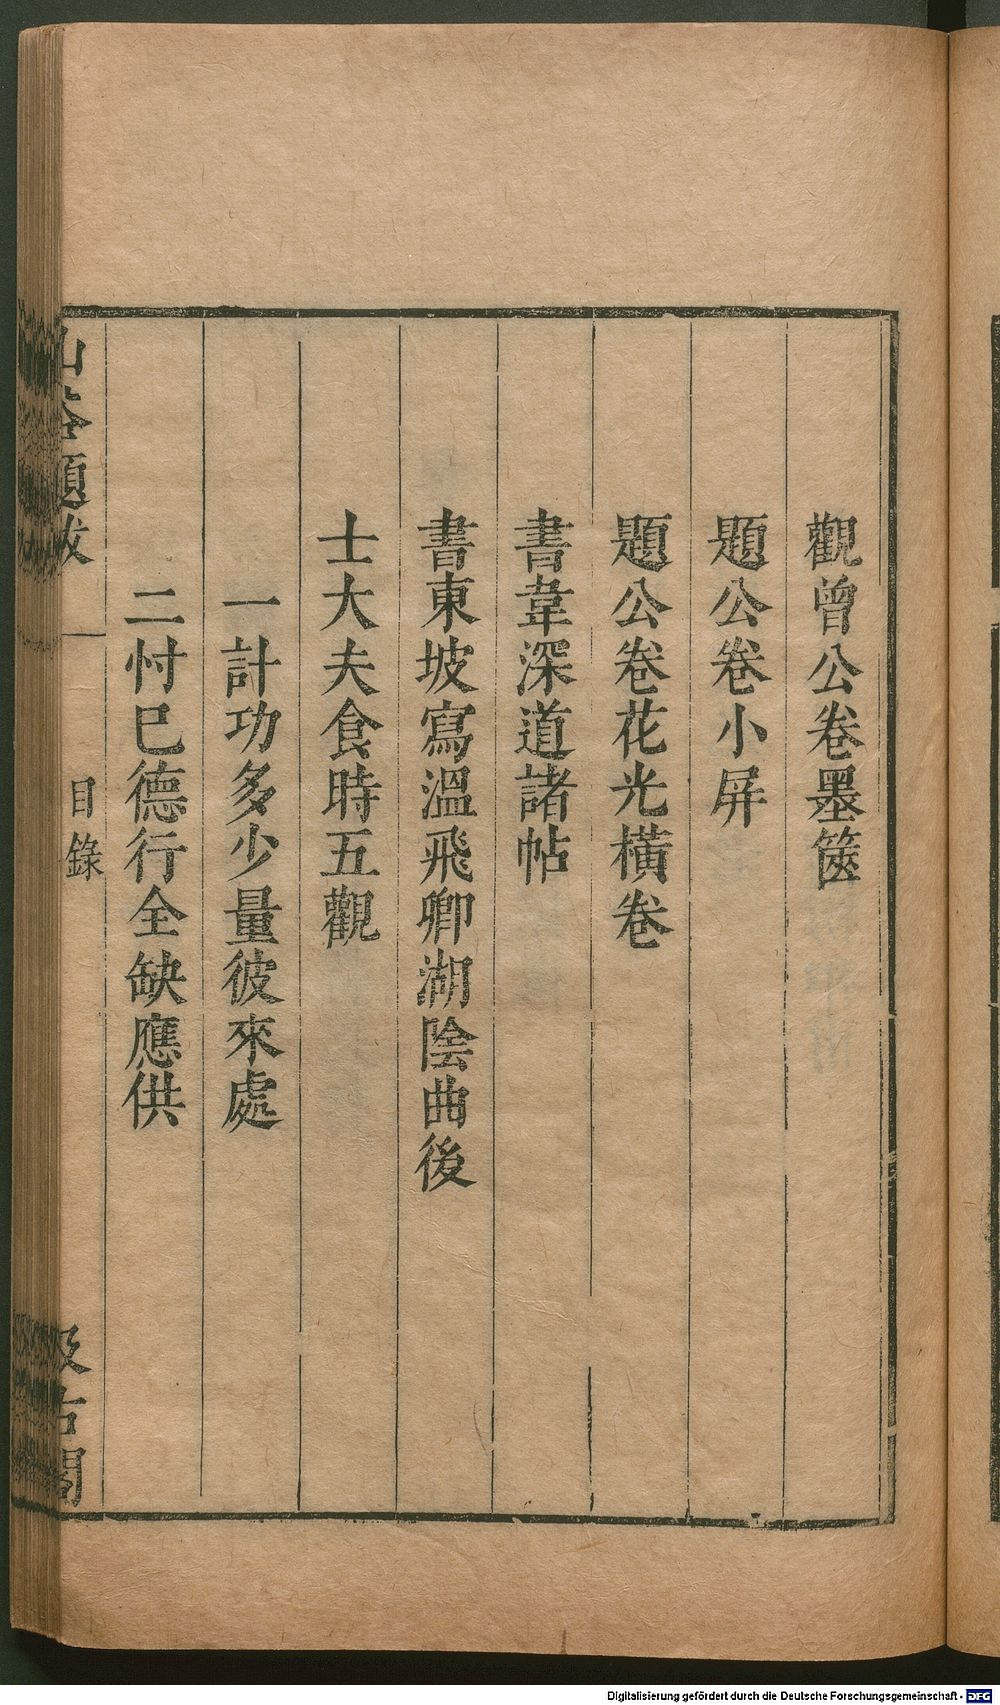 觀曾公卷墨篋
題公卷小屏
題公卷花光橫卷
書韋深道諸帖
書東坡寫溫飛卿湖陰曲後
士大夫食時五觀
一計功多少量彼來處
二忖巳德行全缺應供
山谷題跋
目錄
汲古閣
Digitalisierung gefördert durch die Deutsche Forschungsgemeinschaft - DFG